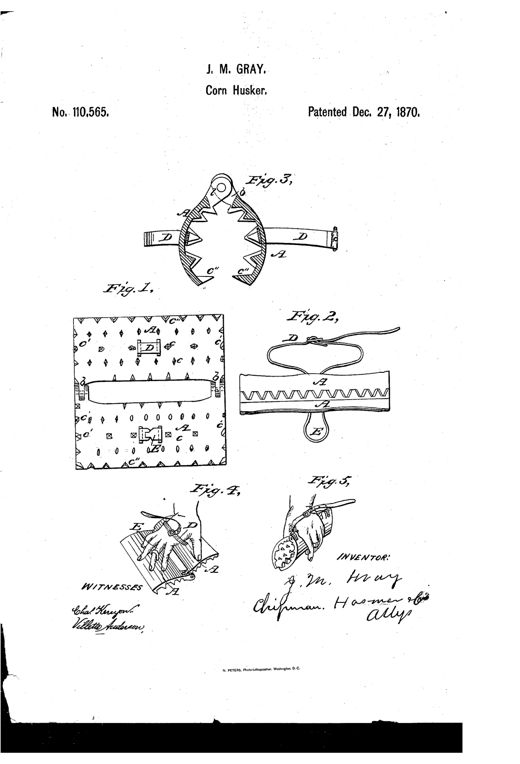 J. M. GRAY.
Corn Husker.
No. 110,565.
Patented Dec. 27, 1870.
Fig. 3,
b
A
D
D
A
c"
c"
Fig. 1,
c"
A
c'
D
c
c
b
b
c'
c
c'
A
c
E
c"
Fig. 2,
D
A
A
E
Fig. 4,
E
D
A
A
Fig. 5,
WITNESSES
Chas Kenyon.
Villette Anderson.
INVENTOR:
J. M. Gray
Chipman Hosmer & Co
Attys
N. PETERS, Photo-Lithographer, Washington, D. C.